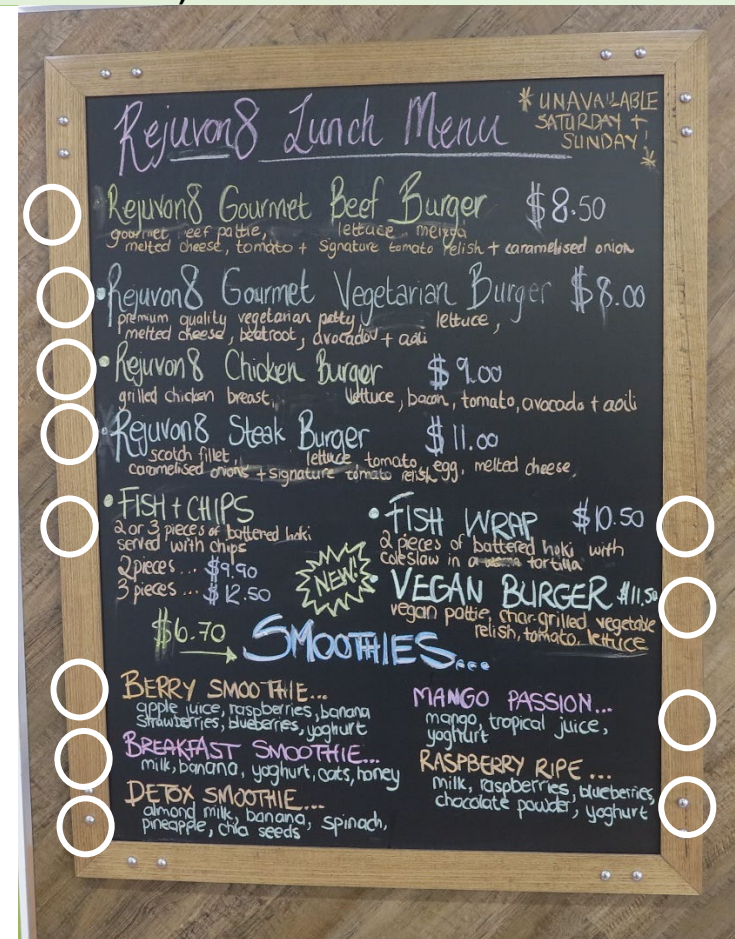 Rejuvon8 Lunch Menu
* UNAVAILABLE
SATURDAY +
SUNDAY! *
Rejuvon8 Gourmet Beef Burger $8.50
gourmet eef pattie, lettuce,
melted cheese, tomato + signature tomato relish + caramelised onion
• Rejuvon8 Gourmet Vegetarian Burger $8.00
premium quality vegetarian patty, lettuce,
melted cheese, beatroot, avocado + aoli
• Rejuvon8 Chicken Burger $9.00
grilled chicken breast, lettuce, bacon, tomato, avocado + aoili
Rejuvon8 Steak Burger $11.00
scotch fillet, lettuce tomato, egg, melted cheese,
caramelised onions + signature tomato relish
• FISH + CHIPS
2 or 3 pieces of battered hoki
served with chips
2 pieces... $9.90
3 pieces... $12.50
• FISH WRAP $10.50
2 pieces of battered hoki with
coleslaw in a tortilla
NEW!
• VEGAN BURGER $11.50
vegan pattie, char-grilled vegetable
relish, tomato, lettuce
$6.70
SMOOTHIES...
BERRY SMOOTHIE...
apple juice, raspberries, banana
strawberries, blueberries, yoghurt
BREAKFAST SMOOTHIE...
milk, banana, yoghurt, oats, honey
DETOX SMOOTHIE...
almond milk, banana, spinach,
pineapple, chia seeds
MANGO PASSION...
mango, tropical juice,
yoghurt
RASPBERRY RIPE...
milk, raspberries, blueberries,
chocolate powder, yoghurt